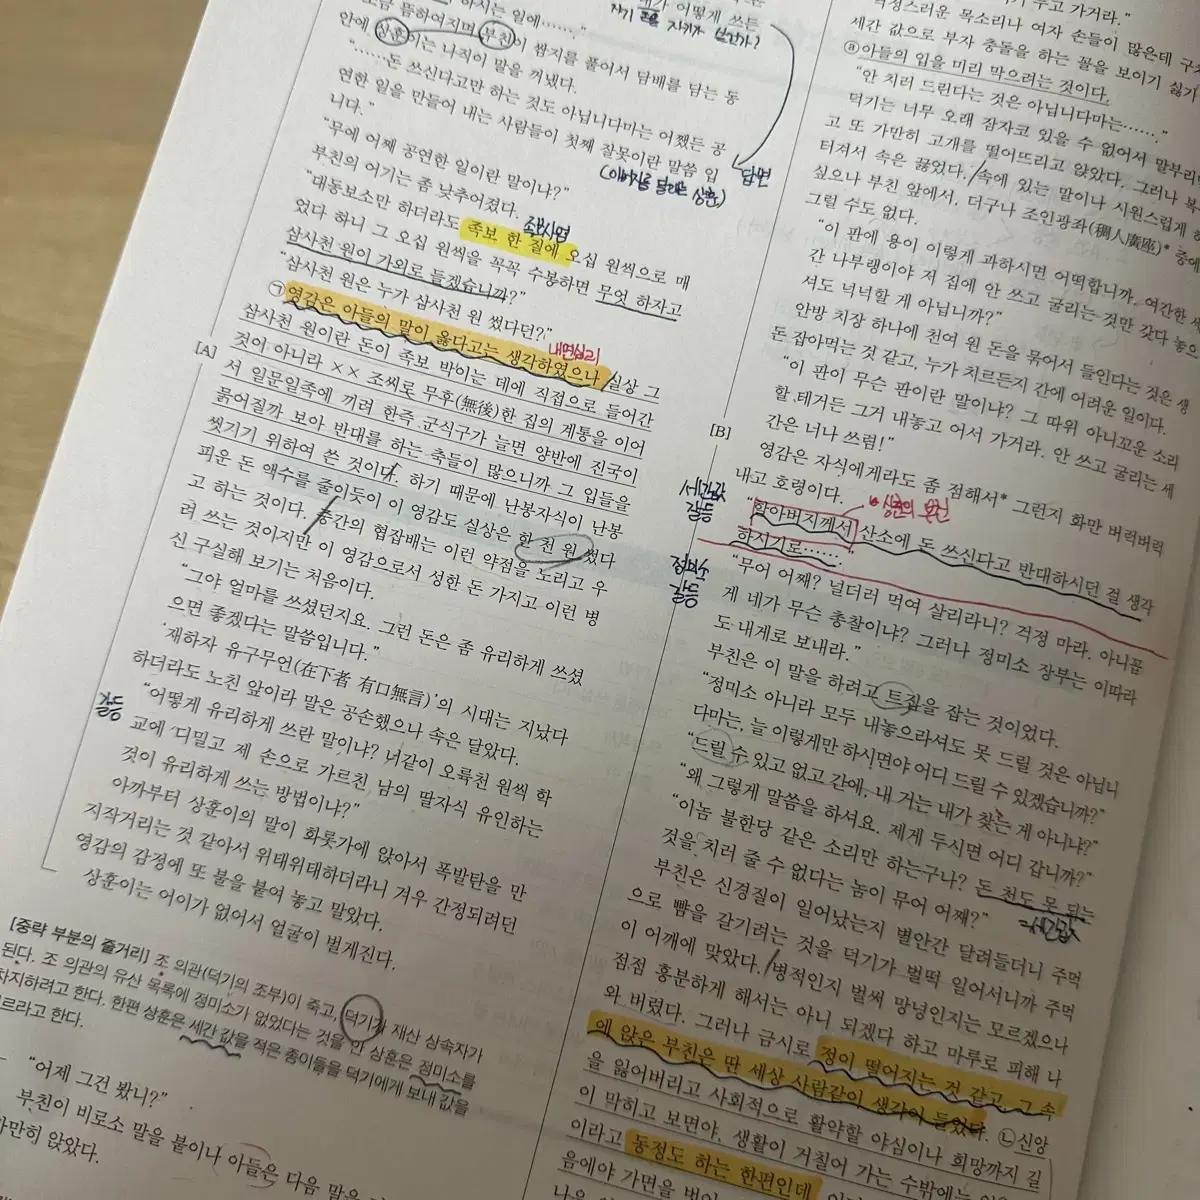 하시는 일에……"
조금 뜸하여지며 부친이 쌈지를 풀어서 담배를 담는 동
안에 상훈이는 나직이 말을 꺼냈다.
"……돈 쓰신다고만 하는 것도 아닙니다마는 어쨌든 공
연한 일을 만들어 내는 사람들이 첫째 잘못이란 말씀 입
니다."
"무에 어째 공연한 일이란 말이냐?"
부친의 어기는 좀 낮추어졌다.
"대동보소만 하더라도 족보 한 질에 오십 원씩으로 매
었다 하니 그 오십 원씩을 꼭꼭 수봉하면 무엇 하자고
삼사천 원이 가외로 들겠습니까?"
"삼사천 원은 누가 삼사천 원 썼다던?"
㉠영감은 아들의 말이 옳다고는 생각하였으나 실상 그
삼사천 원이란 돈이 족보 박이는 데에 직접으로 들어간
것이 아니라 ×× 조씨로 무후(無後)한 집의 계통을 이어
서 일문일족에 끼려 한즉 군식구가 늘면 양반에 진국이
묽어질까 보아 반대를 하는 축들이 많으니까 그 입들을
씻기기 위하여 쓴 것이다. 하기 때문에 난봉자식이 난봉
피운 돈 액수를 줄이듯이 이 영감도 실상은 한 천 원 썼다
고 하는 것이다. 중간의 협잡배는 이런 약점을 노리고 우
려 쓰는 것이지만 이 영감으로서 성한 돈 가지고 이런 병
신 구실해 보기는 처음이다.
"그야 얼마를 쓰셨던지요. 그런 돈은 좀 유리하게 쓰셨
으면 좋겠다는 말씀입니다."
'재하자 유구무언(在下者 有口無言)'의 시대는 지났다
하더라도 노친 앞이라 말은 공손했으나 속은 달았다.
"어떻게 유리하게 쓰란 말이냐? 너같이 오륙천 원씩 학
교에 디밀고 제 손으로 가르친 남의 딸자식 유인하는
것이 유리하게 쓰는 방법이냐?"
아까부터 상훈이의 말이 화롯가에 앉아서 폭발탄을 만
지작거리는 것 같아서 위태위태하더라니 겨우 간정되려던
영감의 감정에 또 불을 붙여 놓고 말았다.
상훈이는 어이가 없어서 얼굴이 벌게진다.
[A]
[중략 부분의 줄거리] 조 의관(덕기의 조부)이 죽고, 덕기가 재산 상속자가
된다. 조 의관의 유산 목록에 정미소가 없었다는 것을 안 상훈은 정미소를
차지하려고 한다. 한편 상훈은 세간 값을 적은 종이들을 덕기에게 보내 값을
르라고 한다.
"어제 그건 봤니?"
부친이 비로소 말을 붙이나 아들은 다음 말을
가만히 앉았다.
어떻게 쓰든
답변
(아버지를 달래는 상훈)
족보사업
내면심리
갈등
두고 가거라."
걱정스러운 목소리나 여자 손들이 많은데 구
세간 값으로 부자 충돌을 하는 꼴을 보이기 싫기
ⓐ아들의 입을 미리 막으려는 것이다.
"안 치러 드린다는 것은 아닙니다마는……"
덕기는 너무 오래 잠자코 있을 수 없어서 말부리만
고 또 가만히 고개를 떨어뜨리고 앉았다. 그러나 복
터져서 속은 끓었다. 속에 있는 말이나 시원스럽게 하
싶으나 부친 앞에서, 더구나 조인광좌(稠人廣座)* 중에
그럴 수도 없다.
"이 판에 용이 이렇게 과하시면 어떡합니까. 여간한 세
간 나부랭이야 저 집에 안 쓰고 굴리는 것만 갖다 놓으
셔도 넉넉할 게 아닙니까?"
안방 치장 하나에 천여 원 돈을 묶어서 들인다는 것은 생
돈 잡아먹는 것 같고, 누가 치르든지 간에 어려운 일이다.
"이 판이 무슨 판이란 말이냐? 그 따위 아니꼬운 소리
할 테거든 그거 내놓고 어서 가거라. 안 쓰고 굴리는 세
간은 너나 쓰렴!"
영감은 자식에게라도 좀 점해서* 그런지 화만 버럭버럭
내고 호령이다.
"할아버지께서 산소에 돈 쓰신다고 반대하시던 걸 생각
하시기로……"
"무어 어째? 널더러 먹여 살리라니? 걱정 마라. 아니꼽
게 네가 무슨 총찰이냐? 그러나 정미소 장부는 이따라
도 내게로 보내라."
부친은 이 말을 하려고 트집을 잡는 것이었다.
"정미소 아니라 모두 내놓으라셔도 못 드릴 것은 아닙니
다마는, 늘 이렇게만 하시면야 어디 드릴 수 있겠습니까?"
"드릴 수 있고 없고 간에, 내 거는 내가 찾는 게 아니냐?"
"왜 그렇게 말씀을 하셔요. 제게 두시면 어디 갑니까?"
"이놈 불한당 같은 소리만 하는구나? 돈 천도 못 되는
것을 치러 줄 수 없다는 놈이 무어 어째?"
부친은 신경질이 일어났는지 별안간 달려들더니 주먹
으로 뺨을 갈기려는 것을 덕기가 벌떡 일어서니까 주먹
이 어깨에 맞았다. 병적인지 벌써 망녕인지는 모르겠으나
점점 흥분하게 해서는 아니 되겠다 하고 마루로 피해 나
와 버렸다. 그러나 금시로 정이 떨어지는 것 같고, 그 속
에 앉은 부친은 딴 세상 사람같이 생각이 들었다. ㉡신앙
을 잃어버리고 사회적으로 활약할 야심이나 희망까지 길
이 막히고 보면야, 생활이 거칠어 가는 수밖에는
이라고 동정도 하는 한편인데
음에야 가면을 벗어
[B]
세간값
갈등
상훈의 부친
정미소
갈등
=세간값